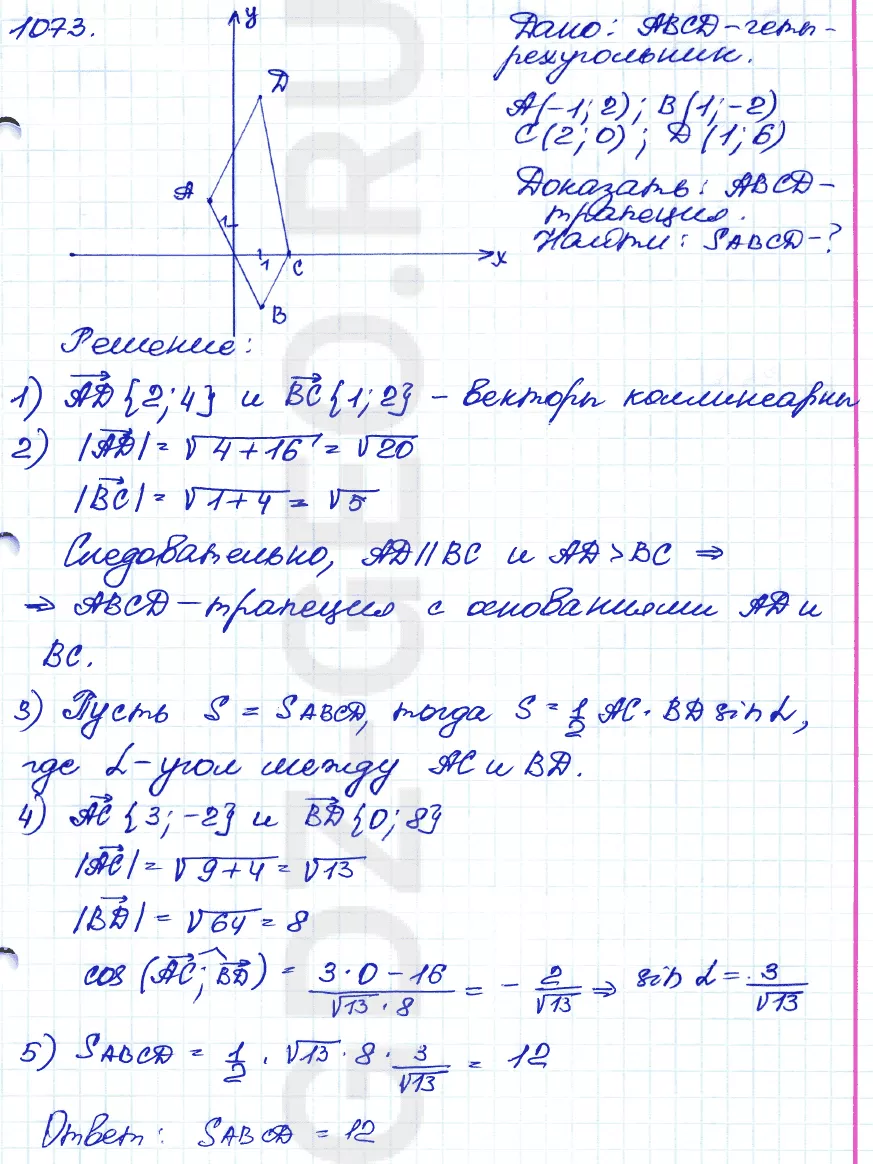 1073.
y
D
A
1
1
C
x
B
Дано: ABCD – четы-
рехугольник.
A(-1; 2); B(1; -2)
C(2; 0); D(1; 6)
Доказать: ABCD –
трапеция.
Найти: SABCD – ?
Решение:
1) AD {2; 4} и BC {1; 2} – векторы коллинеарны
2) |AD| = √4+16 = √20
|BC| = √1+4 = √5
Следовательно, AD || BC и AD > BC ⇒
⇒ ABCD – трапеция с основаниями AD и
BC.
3) Пусть S = SABCD, тогда S = 1/2 AC · BD sin α,
где α – угол между AC и BD.
4) AC {3; -2} и BD {0; 8}
|AC| = √9+4 = √13
|BD| = √64 = 8
cos (AC; BD) = 3·0 – 16 / √13 · 8 = – 2/√13 ⇒ sin α = 3/√13
5) SABCD = 1/2 · √13 · 8 · 3/√13 = 12
Ответ: SABCD = 12
GDZ-GEO.RU